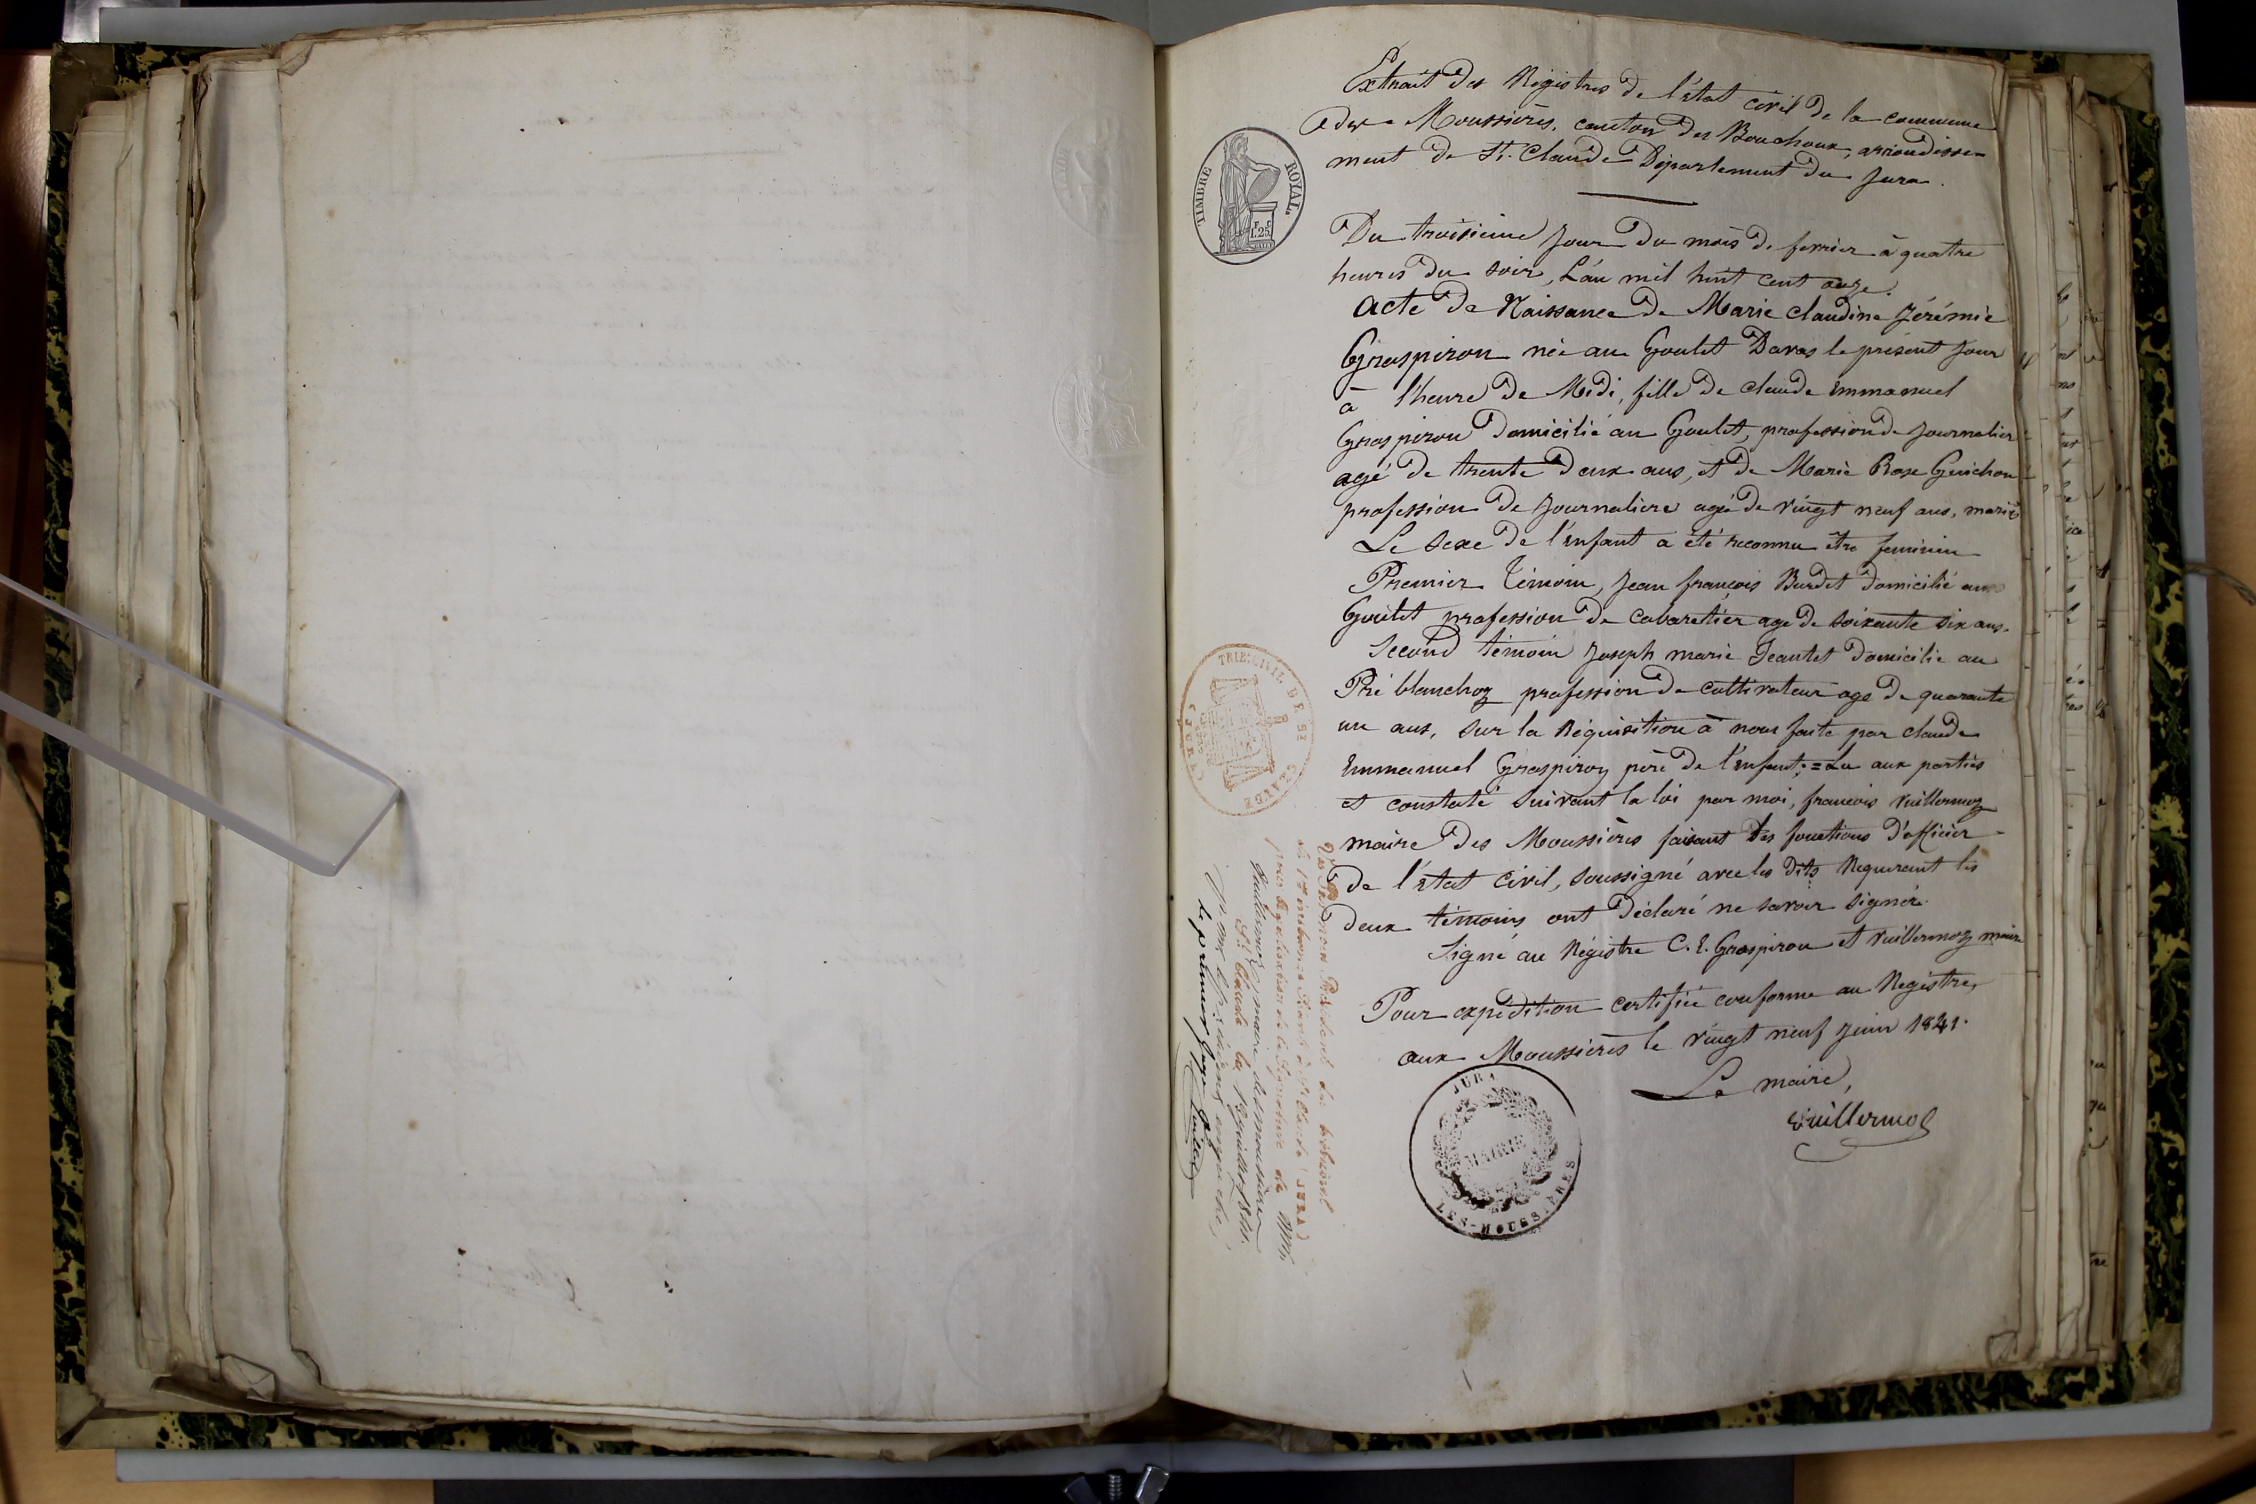 Extrait des Régistres de l'état civil de la commune
des Moussières, canton des Bouchoux, arrondisse-
ment de St. Claude Département du Jura.
TIMBRE ROYAL
Du troisième jour du mois de fevrier à quatre
heures du soir, L'an mil huit cent onze.
Acte de Naissance de Marie Claudine Jérémie
Grospiron née au Goulet Davos le présent jour
à l'heure de Midi, fille de Claude Emmanuel
Grospiron domicilié au Goulet, profession de journalier
agé de trente deux ans, et de Marie Rose Guichon
profession de journaliere agé de vingt neuf ans, mariés
Le sexe de l'enfant a été reconnu être feminin
Premier Témoin, Jean françois Burdet domicilié au
Goulet profession de cabaretier age de soixante six ans.
Second témoin Joseph marie Jeantet domicilié au
Pré blanchoz profession de cultivateur age de quarante
un ans, sur la Réquisition à nous faite par claude
Emmanuel Grospiron père de l'enfant; = Lu aux parties
et constaté suivant la loi par moi, francois Vuillermoz
maire des Moussières faisant les fonctions d'officier
de l'état civil, soussigné avec les dits Requerant les
deux témoins ont déclaré ne savoir signer.
Signé au Régistre C. E. Grospiron et Vuillermoz maire
Pour expédition certifiée conforme au Registre,
aux Moussières le vingt neuf juin 1841.
Le maire,
Vuillermoz
JURA
MAIRIE
LES-MOUSSIERES
TRIB. CIVIL DE ST CLAUDE (JURA)
Vu par Président du tribunal
de 1re instance séant à St Claude (JURA)
pour légalisation de la signature de Mr
Vuillermoz maire des moussières
St Claude le 1er juillet 1841.
Pour le président empêché,
le premier juge